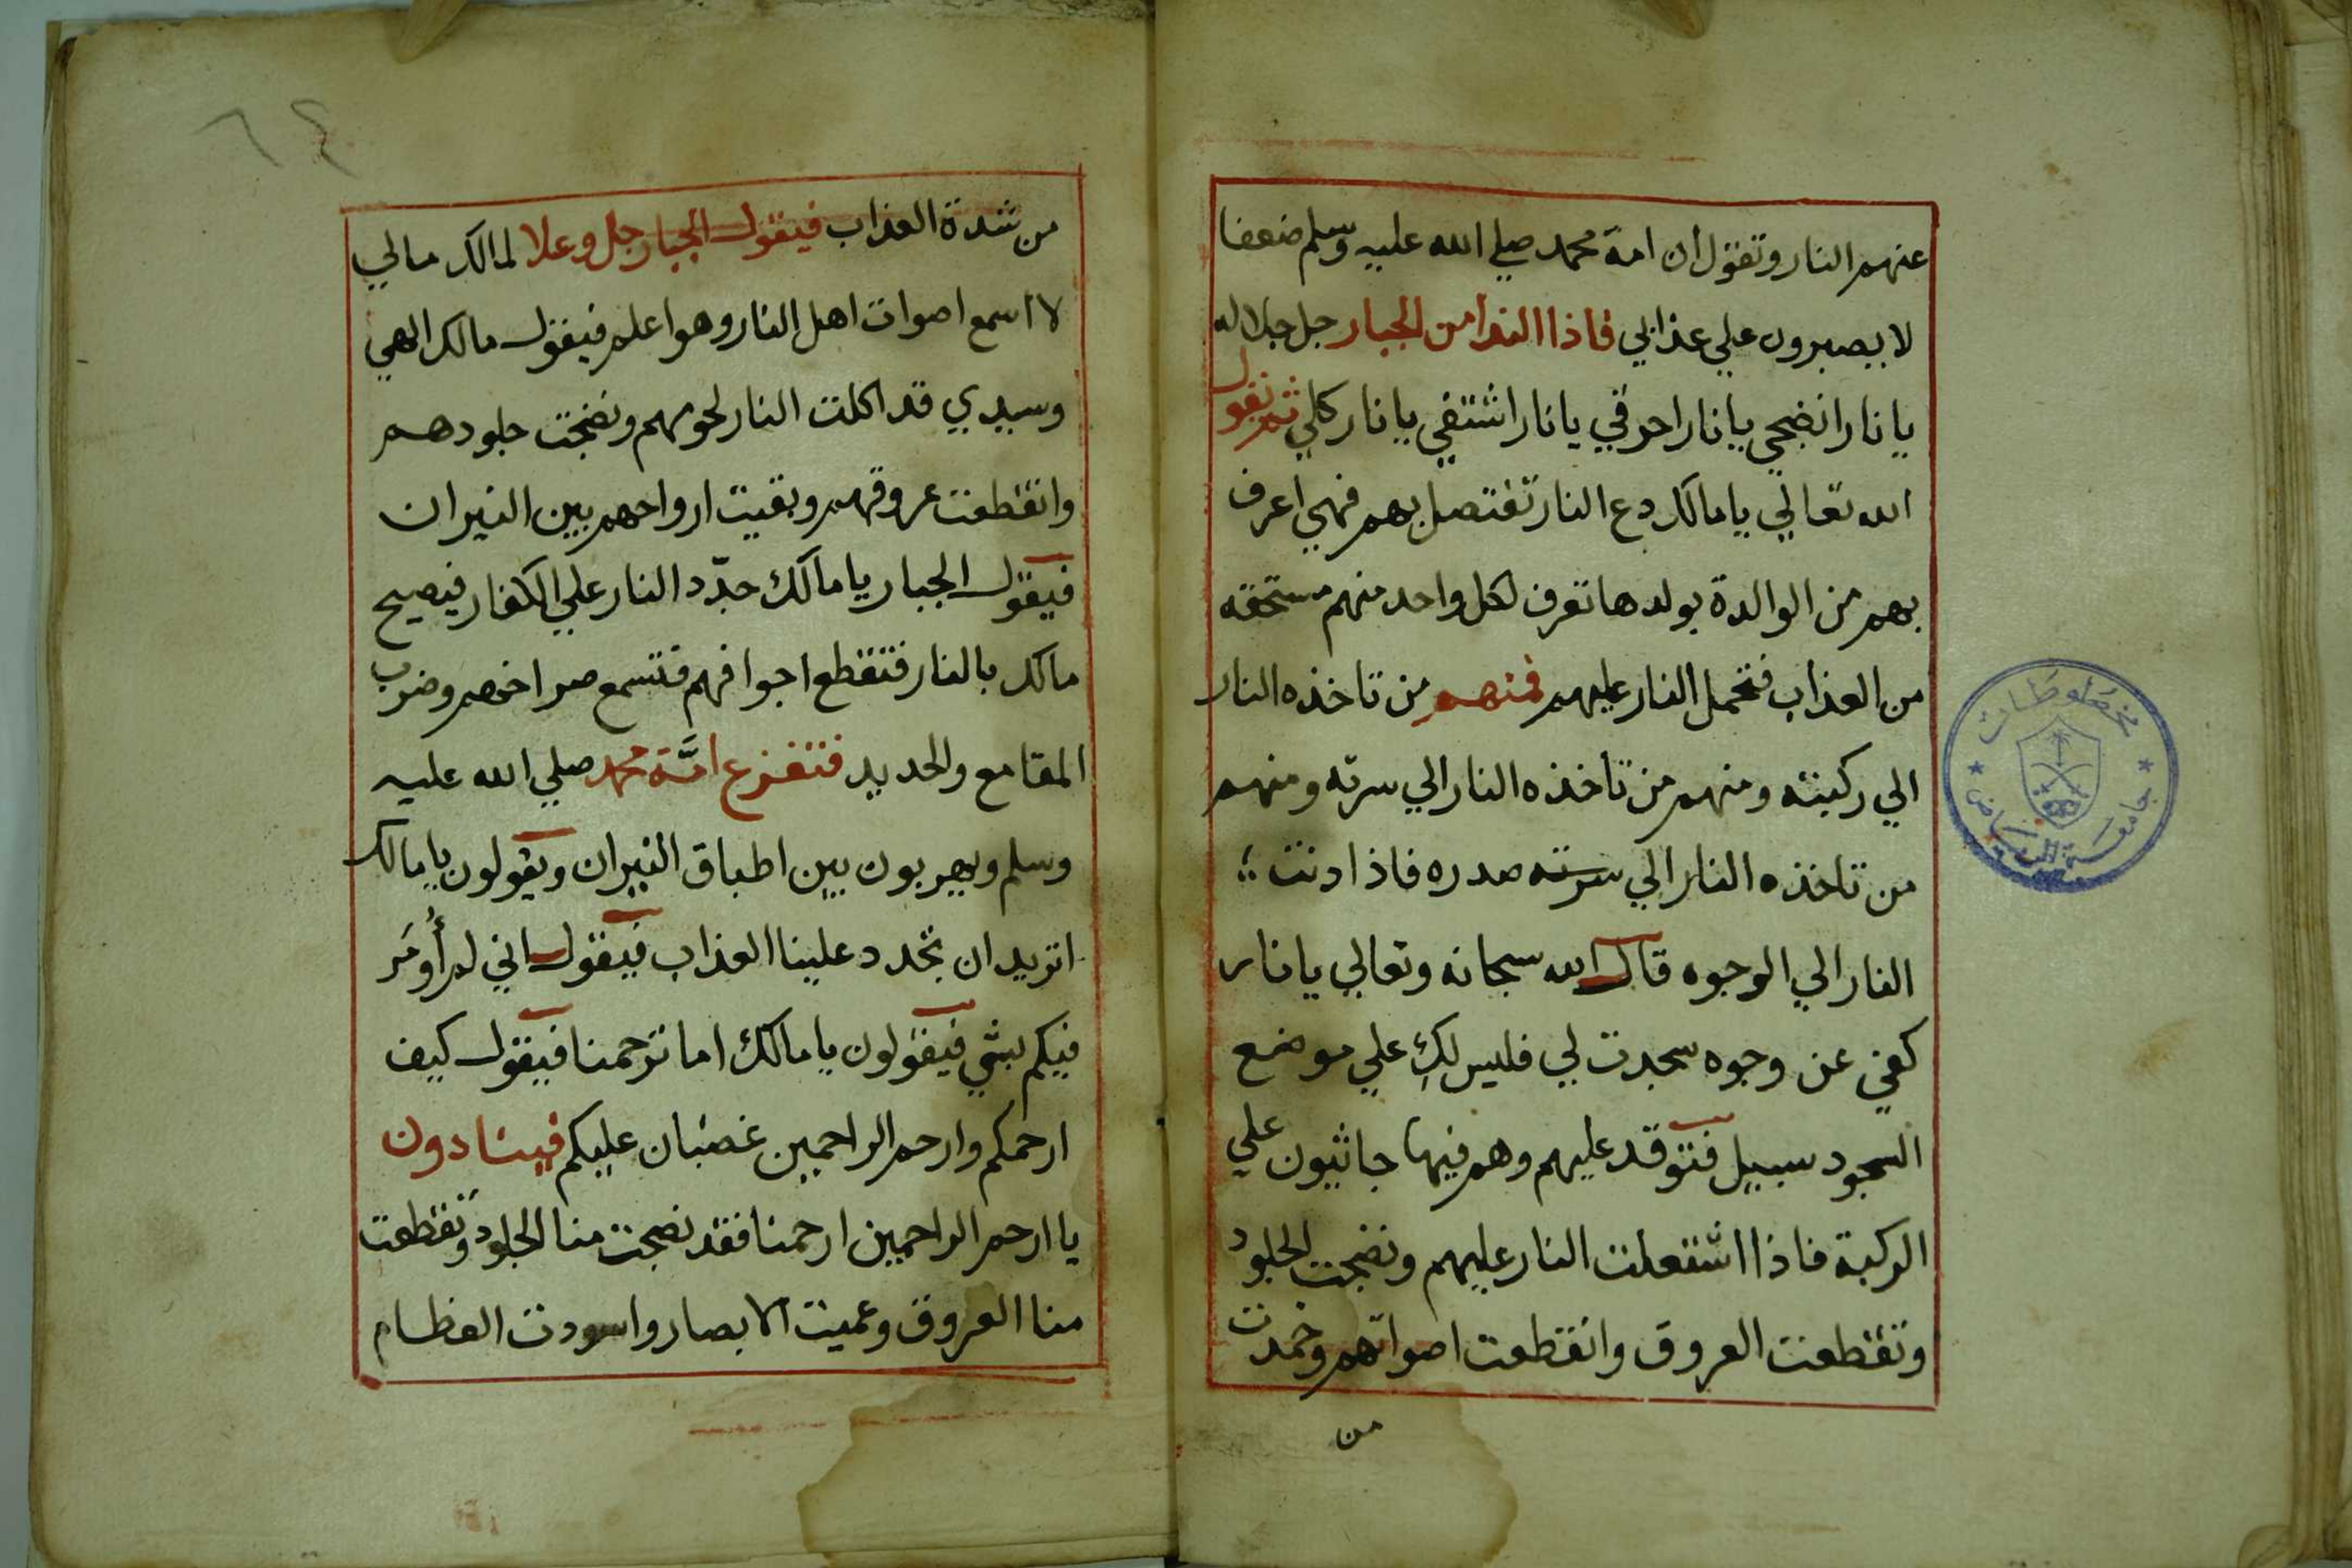 عنهم النار وتقول ان امة محمد صلي الله عليه وسلم ضعفا
لا يصبرون علي عذابي فاذا الندا من الجبار جل جلاله
يا نار انضجي يا نار احرقي يا نار اشتفي يا نار كلي ثم يقول
الله تعالي يا مالك دع النار تفتصل بهم فهي اعرف
بهم من الوالدة بولدها تعرف لكل واحد منهم مستحقه
من العذاب فتحمل النار عليهم فمنهم من تاخذه النار
الي ركبته ومنهم من تاخذه النار الي سرته ومنهم
من تاخذه النار الي سرته صدره فاذا دنت
النار الي الوجوه قال الله سبحانه وتعالي يا نار
كفي عن وجوه سجدت لي فليس لكِ علي موضع
السجود سبيل فتوقد عليهم وهم فيها جاثيون علي
الركبة فاذا اشتعلت النار عليهم ونضجت الجلود
وتقطعت العروق وانقطعت اصواتهم وخمدت
من
٦٤
من شدة العذاب فيقول الجبار جل وعلا لمالك مالي
لا اسمع اصوات اهل النار وهو اعلم فيقول مالك الهي
وسيدي قد اكلت النار لحومهم ونضجت جلودهم
وانقطعت عروقهم وبقيت ارواحهم بين النيران
فيقول الجبار يا مالك جدّد النار علي الكفار فيصيح
مالك بالنار فتقطع اجوافهم فتسمع صراخهم وضرب
المقامع والحديد فتفزع امَّة محمد صلي الله عليه
وسلم ويهربون بين اطباق النيران ويقولون يا مالك
اتريد ان تجدد علينا العذاب فيقول اني لم أُومَر
فيكم بشي فيقولون يا مالك اما ترحمنا فيقول كيف
ارحمكم وارحم الراحمين غضبان عليكم فينادون
يا ارحم الراحمين ارحمنا فقد نضجت منا الجلود وتقطعت
منا العروق وعميت الابصار واسودت العظام
مخطوطات
جامعة الرياض